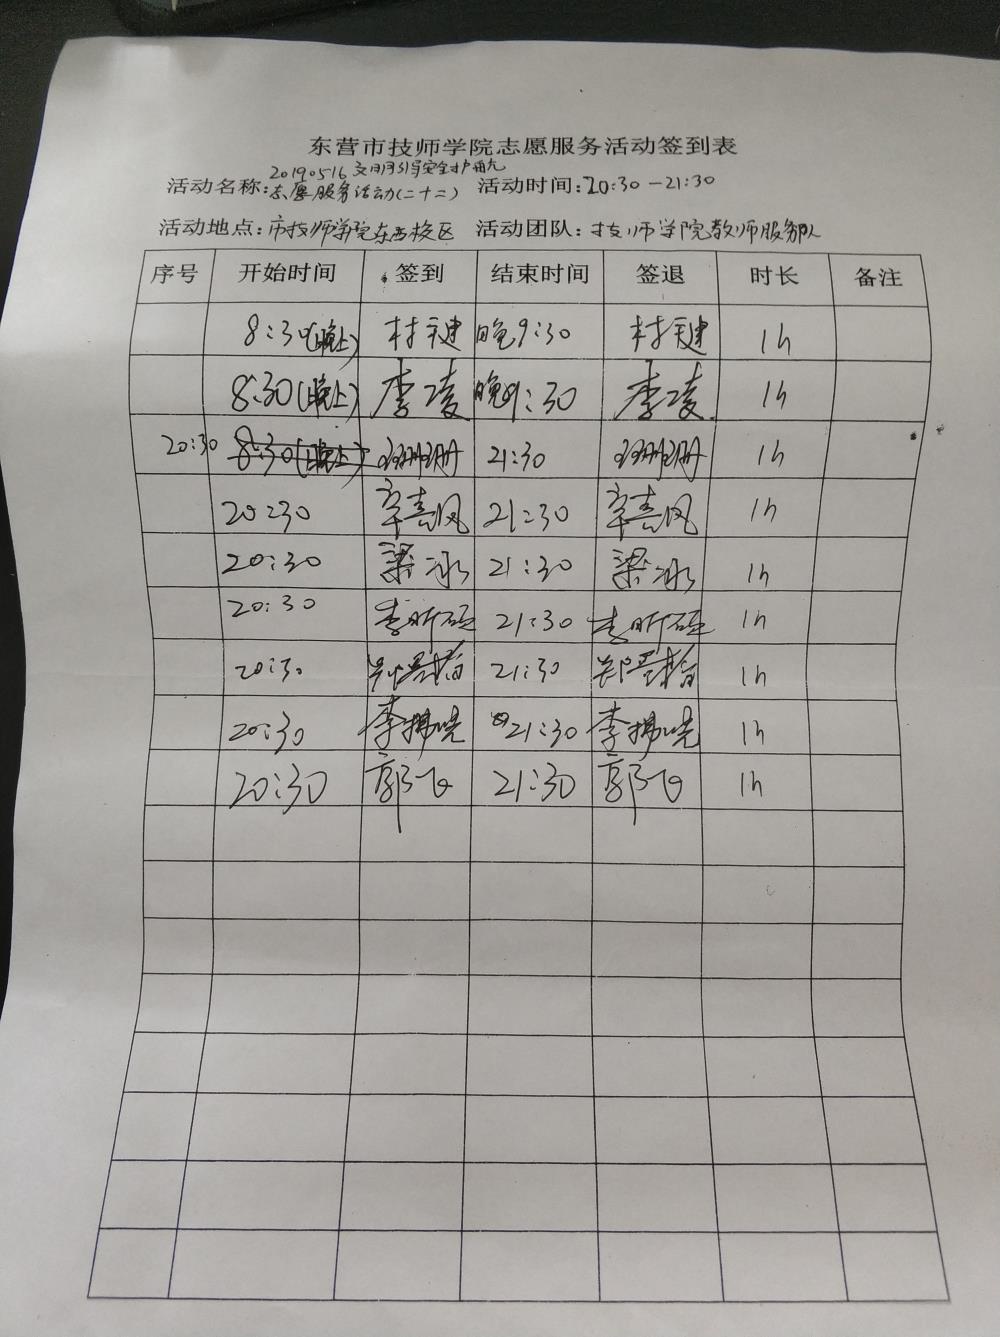 东营市技师学院志愿服务活动签到表
20190516文明引导安全护航
活动名称:志愿服务活动(二十二) 活动时间:20:30-21:30
活动地点:市技师学院东西校区 活动团队:技师学院教师服务队
序号 开始时间 签到 结束时间 签退 时长 备注
8:30(晚上) 晚9:30 1h
8:30(晚上) 李凌 晚9:30 李凌 1h
20:30 8:30(晚上) 21:30 1h
20:30 辛春风 21:30 辛春风 1h
20:30 梁冰 21:30 梁冰 1h
20:30 李昕硕 21:30 李昕硕 1h
20:30 21:30 1h
20:30 李拂晓 21:30 李拂晓 1h
20:30 郭飞 21:30 郭飞 1h